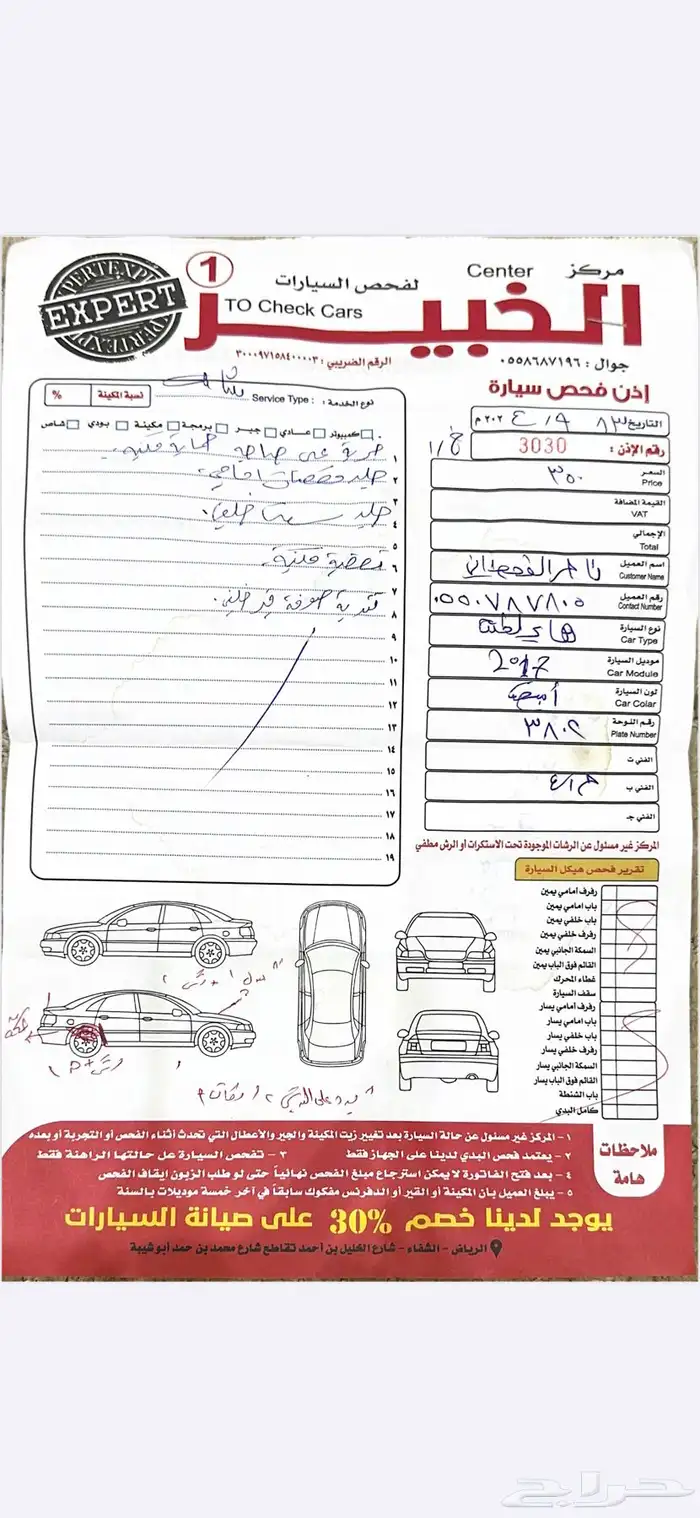 مركز Center
الخبير
لفحص السيارات
TO Check Cars
1
PERTEXPE
EXPERT
جوال : ٠٥٥٨٦٨٧١٩٦
الرقم الضريبي : ٣٠٠٠٩٧١٥٨٤٠٠٠٠٣
إذن فحص سيارة
التاريخ ٤/٩ ٢٠٢ م
رقم الإذن : 3030
السعر ٣٥٠
Price
القيمة المضافة
VAT
الإجمالي
Total
اسم العميل
Customer Name
رقم العميل ٠٥٥٠٧٨٧٨٠٥
Contact Number
نوع السيارة
Car Type
موديل السيارة 2017
Car Module
لون السيارة أبيض
Car Colar
رقم اللوحة ٣٨٠٢
Plate Number
الفني ت
الفني ب
الفني جـ
نوع الخدمة : Service Type : شامل
نسبة المكينة %
كمبيوتر عــادي جيـر برمجة مكينة بودي شاص
١
٢ جلد مقصات امامي
٣
٤ جلد ستت خلفي
٥
٦ تصفية مكينة
٧
٨
٩
١٠
١١
١٢
١٣
١٤
١٥
١٦
١٧
١٨
١٩
المركز غير مسئول عن الرشات الموجودة تحت الاستكرات أو الرش مطفي
تقرير فحص هيكل السيارة
رفرف أمامي يمين
باب امامي يمين
باب خلفي يمين
رفرف خلفي يمين
السمكة الجانبي يمين
القائم فوق الباب يمين
غطاء المحرك
سقف السيارة
رفرف أمامي يسار
باب امامي يسار
باب خلفي يسار
رفرف خلفي يسار
السمكة الجانبي يسار
القائم فوق الباب يسار
باب الشنطة
كامل البدي
ملاحظات هامة
١ - المركز غير مسئول عن حالة السيارة بعد تغيير زيت المكينة والجير والأعطال التي تحدث أثناء الفحص أو التجربة أو بعده
٢ - يعتمد فحص البدي لدينا على الجهاز فقط ٣ - تفحص السيارة عل حالتها الراهنة فقط
٤ - بعد فتح الفاتورة لا يمكن استرجاع مبلغ الفحص نهائياً حتى لو طلب الزبون إيقاف الفحص
٥ - يبلغ العميل بان المكينة أو القير او الدفرنس مفكوك سابقاً في آخر خمسة موديلات بالسنة
يوجد لدينا خصم 30% على صيانة السيارات
الرياض - الشفاء - شارع الخليل بن أحمد تقاطع شارع محمد بن حمد أبو شيبة
حراج